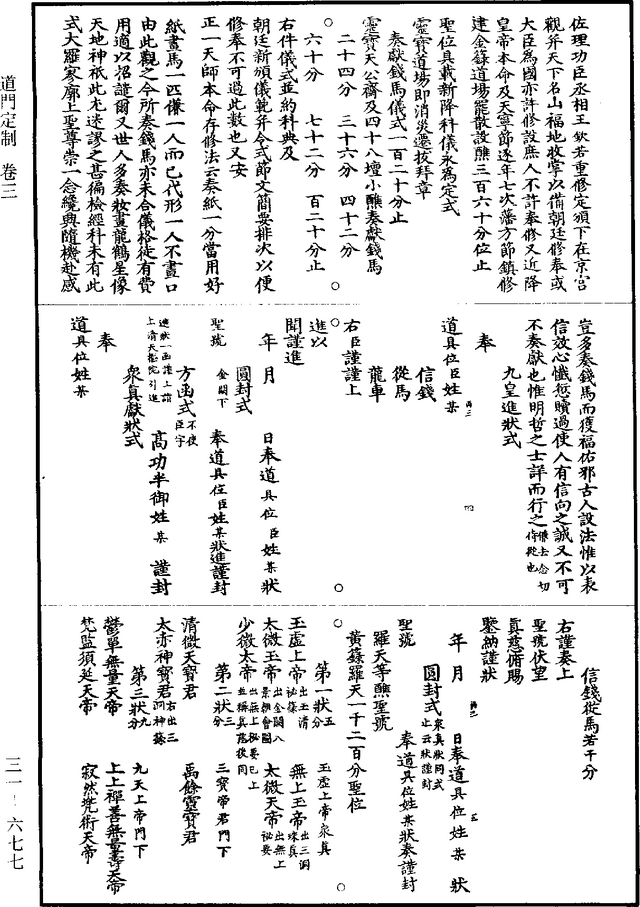 佐理功臣丞相王欽若重修定頒下在京宮
觀并天下名山福地收掌以備朝廷修奉或
大臣為國亦許修設庶人不許奉修又近降
皇帝本命及天寧節逐年七次藩方節鎮修
建金籙道場罷散設醮三百六十分位止
聖位具載新降科儀永為定式
靈寶道場即消災遷拔拜章
奏獻錢馬儀式一百二十分止
靈寶天公齋及四十八壇小醮奏獻錢馬
二十四分 三十六分 四十二分
六十分 七十二分 百二十分止
右件儀式並約科典及
朝廷新頒儀範并令式節文簡要排次以便
修奉不可過此數也又安
正一天師本命存修法云奏紙一分當用好
紙畫馬一匹傔一人而已代形一人不畫口
由此觀之今所奏錢馬亦未合儀格徒有費
用適以招譴爾又世人多奏妝畫龍鶴星像
天地神祇此尤迷謬之甚徧檢經科未有此
式大羅寥廓上聖尊崇一念纔興隨機赴感
豈多奏錢馬而獲福佑邪古人設法惟以表
信效心懺愆贖過使人有信向之誠又不可
不奏獻也惟明哲之士詳而行之
九皇進狀式
奉
道具位臣姓某
信錢
從馬
龍車
右臣謹謹上
進以
聞謹進
年 月 日奉道具位臣姓某狀
圓封式
聖號 金闕下 奉道具位臣姓某狀進謹封
方函式不使臣字
進狀一函謹上請
上清天樞院引進 高功半御姓某謹封
衆真獻狀式
奉
道具位姓某
信錢從馬若干分
右謹奏上
聖號伏望
真慈俯賜
鑒納謹狀
年 月 日奉道具位姓某狀
圓封式衆真狀同式止云狀謹封
聖號 奉道具位姓某狀奏謹封
羅天等醮聖號
黃籙羅天一千二百分聖位
第一狀五分 玉虛上帝衆真
玉虛上帝出玉清祕籙 無上玉帝出三洞
太微玉帝出金闕八景儀會圖 太微天帝出無上祕要
少微太帝出無上祕要已上並稱真慈後同
第二狀三分 三寶帝君門下
清微天寶君 禹餘靈寶君
太赤神寶君右出三洞神籙
第三狀九分 九天上帝門下
鬱單無量天帝 上上禪善無量壽天帝
梵監須延天帝 寂然兜術天帝
道門定制 卷三
三一—六七七